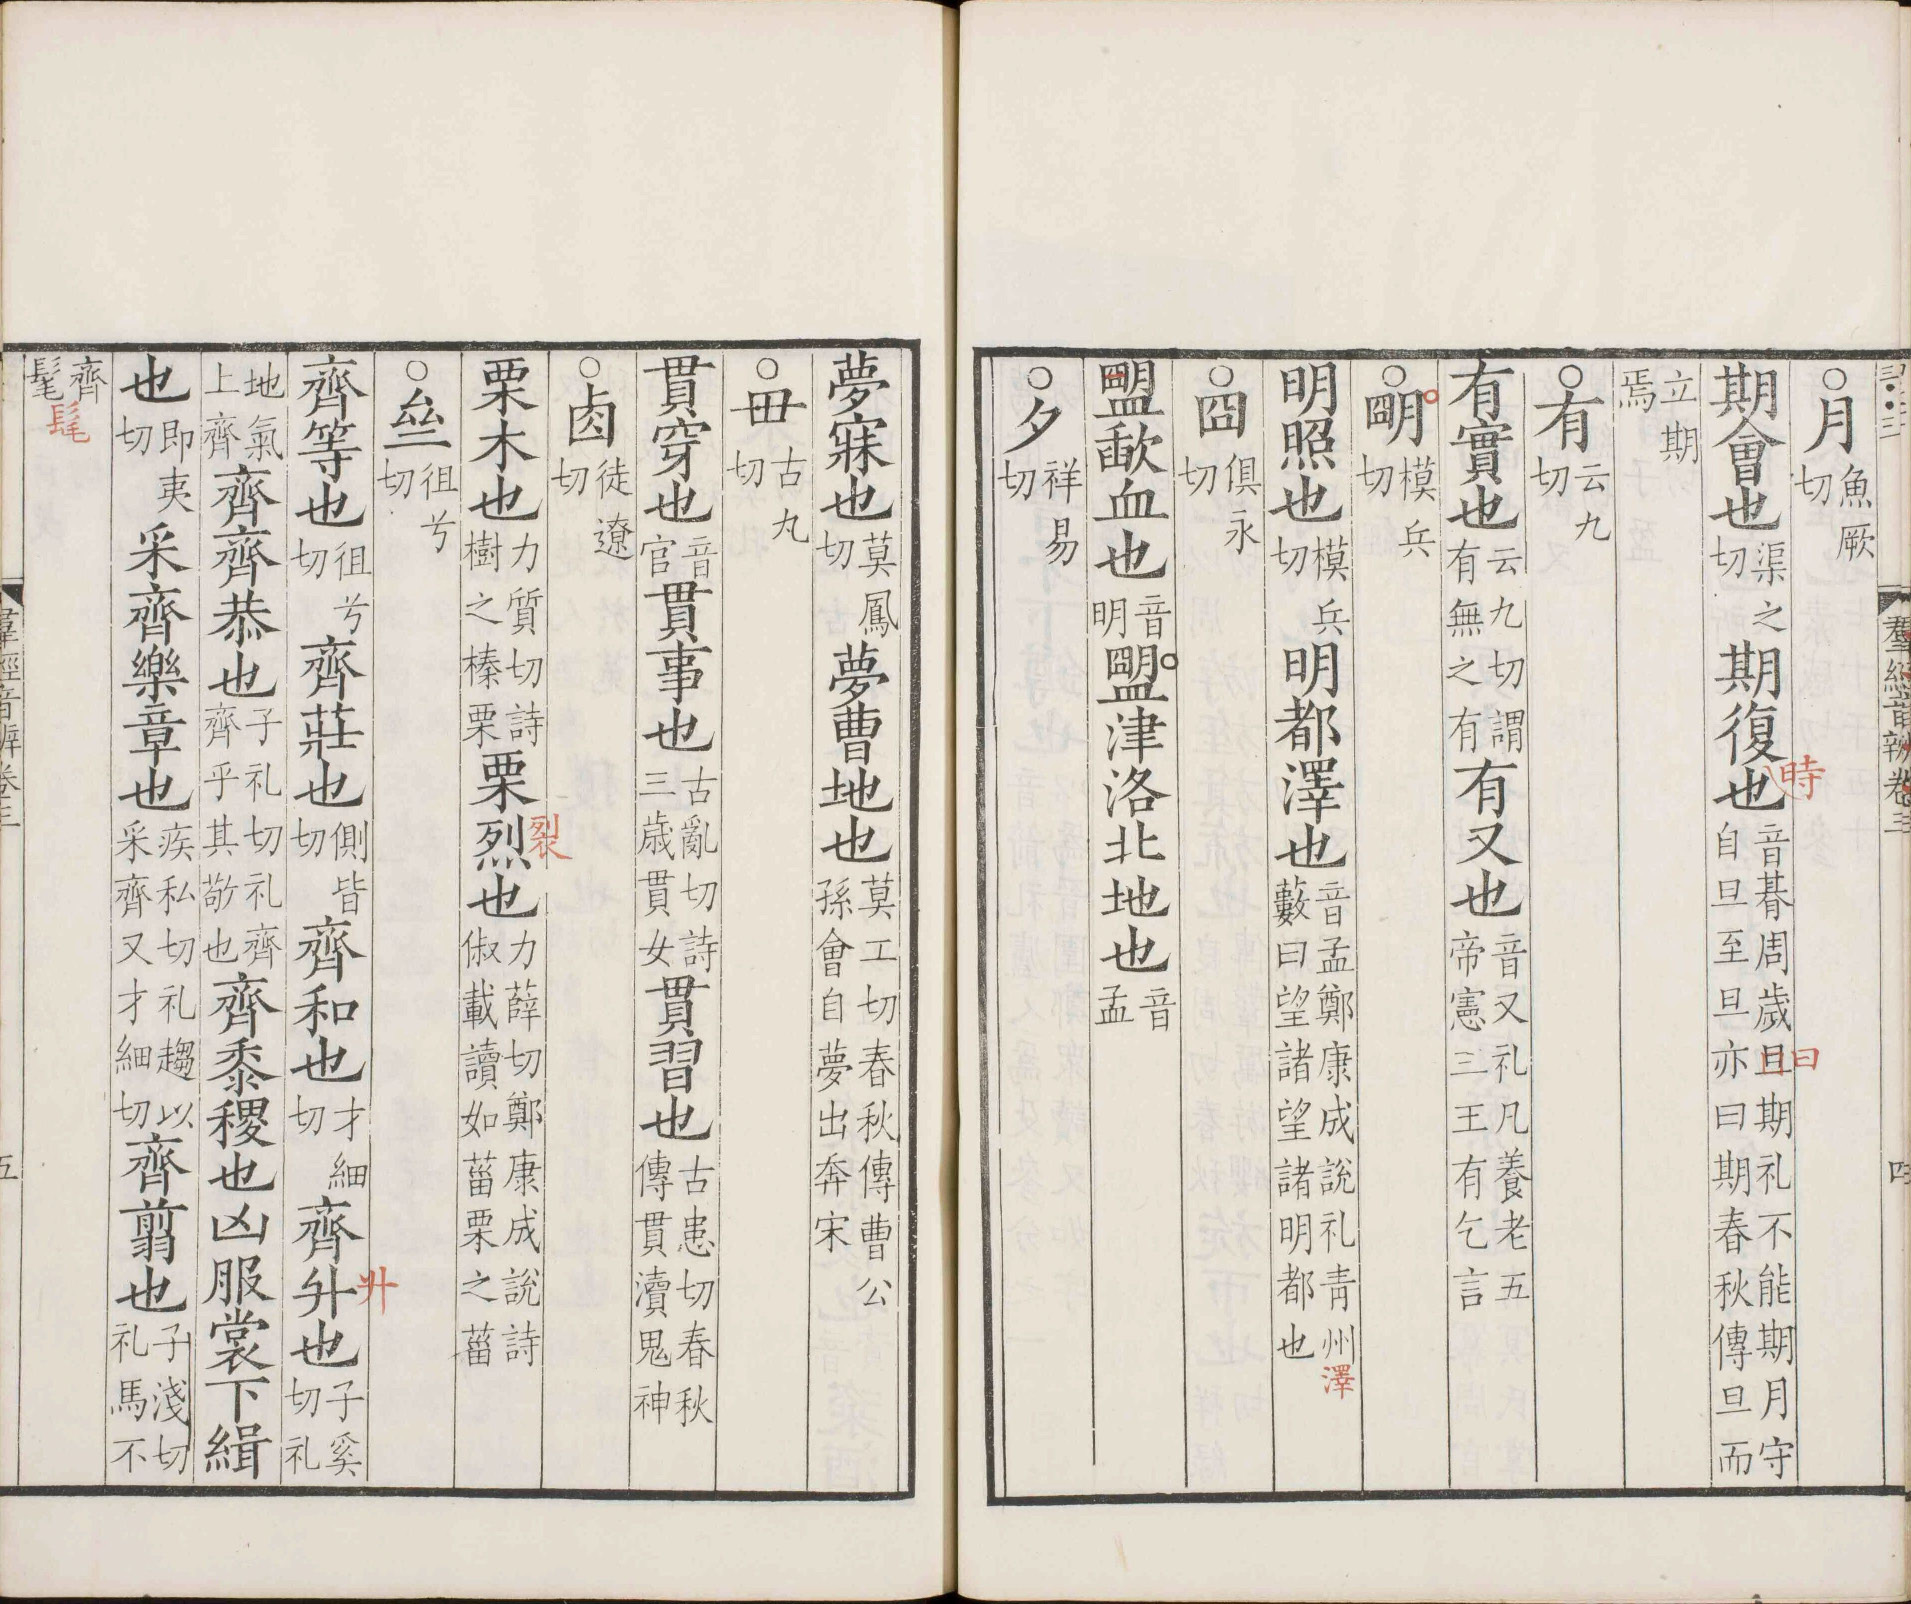 羣經音辨卷三 四
○月魚厥切
期會也渠之切期復也音朞周歲旦期礼不能期月守自旦至旦亦曰期春秋傳旦而
時
曰
立期焉
○有云九切
有實也云九切謂有無之有有又也音又礼凡養老五帝憲三王有乞言
○朙模兵切
明照也模兵切明都澤也音孟鄭康成說礼青州藪曰望諸望諸明都也
澤
○囧俱永切
盟歃血也音明盟津洛北地也音孟
○夕祥易切
夢寐也莫鳳切夢曹地也莫工切春秋傳曹公孫會自夢出奔宋
○毌古九切
貫穿也音官貫事也古亂切詩三歲貫女貫習也古患切春秋傳貫瀆鬼神
○卥徒遼切
栗木也力質切詩樹之榛栗栗烈也力薛切鄭康成說詩俶載讀如菑栗之菑
裂
○亝徂兮切
齊等也徂兮切齊莊也側皆切齊和也才細切齊升也子奚切礼
升
地氣上齊齊齊恭也子礼切礼齊齊乎其敬也齊黍稷也凶服裳下緝
也即夷切采齊樂章也疾私切礼趨以采齊又才細切齊翦也子淺切礼馬不
齊髦
髦
羣經音辨卷三 五